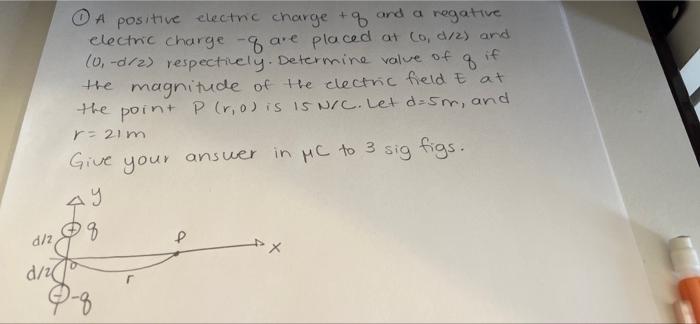 ① A positive electric charge +q and a negative
electric charge -q are placed at (0, d/2) and
(0, -d/2) respectively. Determine value of q if
the magnitude of the electric field E at
the point P (r,0) is 15 N/C. Let d=5m, and
r = 21m
Give your answer in μC to 3 sig figs.
y
d/2 + q P
x
d/2 0 r
-q